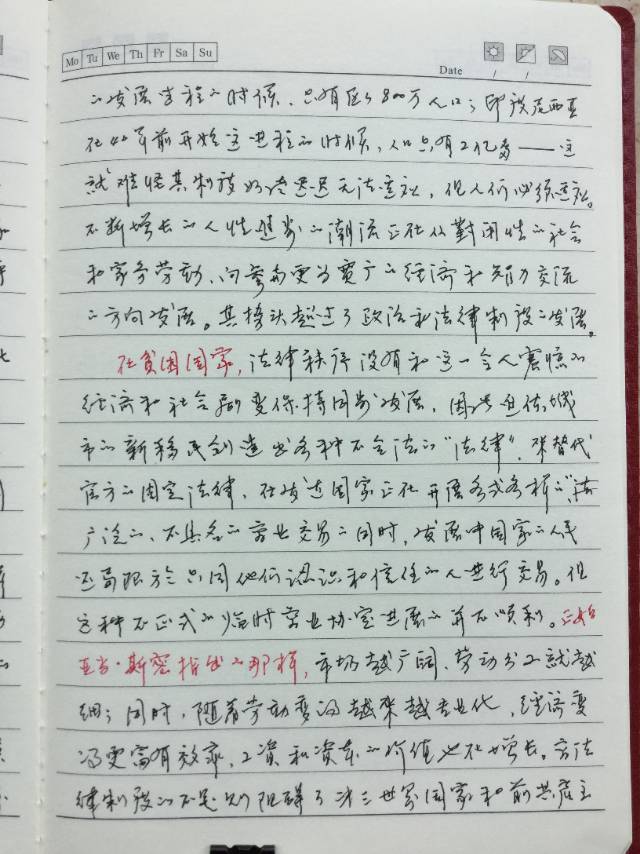 Mo Tu We Th Fr Sa Su
Date / /
的发展过程的时候，只有区区800万人口；印度尼西亚
在40年前开始这进程的时候，人口只有2亿多——这
就难怪其制度的迟迟无法建立，但人们必须建立。
不断增长的人性进步的潮流正在从对闭性的社会
和家务劳动，向着更为宽广的经济和智力交流
的方向发展。其势头超过了政治和法律制度的发展。
在贫困国家，法律秩序没有和这一令人震惊的
经济和社会剧变保持同步发展，因此迫使城
市的新移民创造出各种不合法的“法律”，来替代
官方的固定法律。在发达国家正在开展各式各样的
广泛的、不具名的商业交易的同时，发展中国家的人民
还局限于只同他们认识和信任的人进行交易。但
这种不正式的临时商业协定进展的并不顺利。正如
亚当·斯密指出的那样，市场越广阔，劳动分工就越
细；同时，随着劳动变得越来越专业化，经济变
得更富有效率，工资和资本的价值也在增长。方法
律制度的不足则阻碍了第三世界国家和前共产主